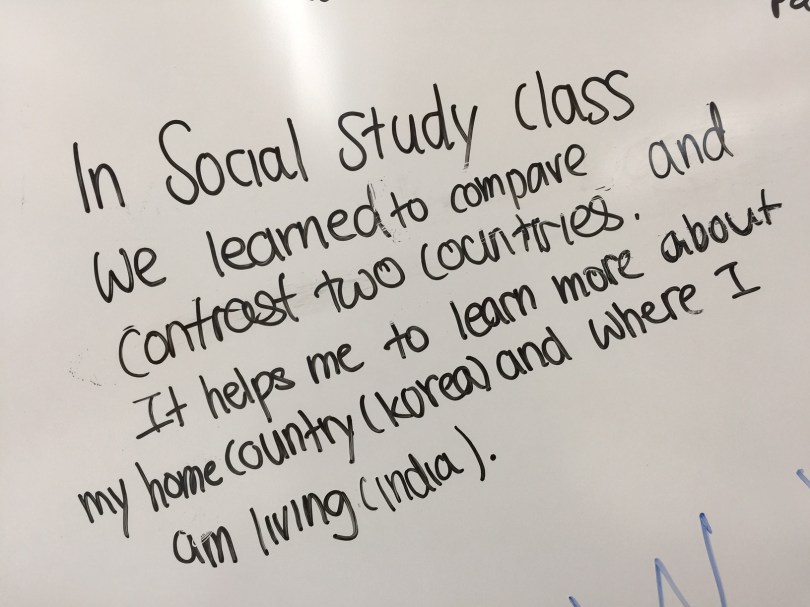 In Social Study class
We learned to compare and
contrast two countries.
It helps me to learn more about
my home country (korea) and where I
am living (india).